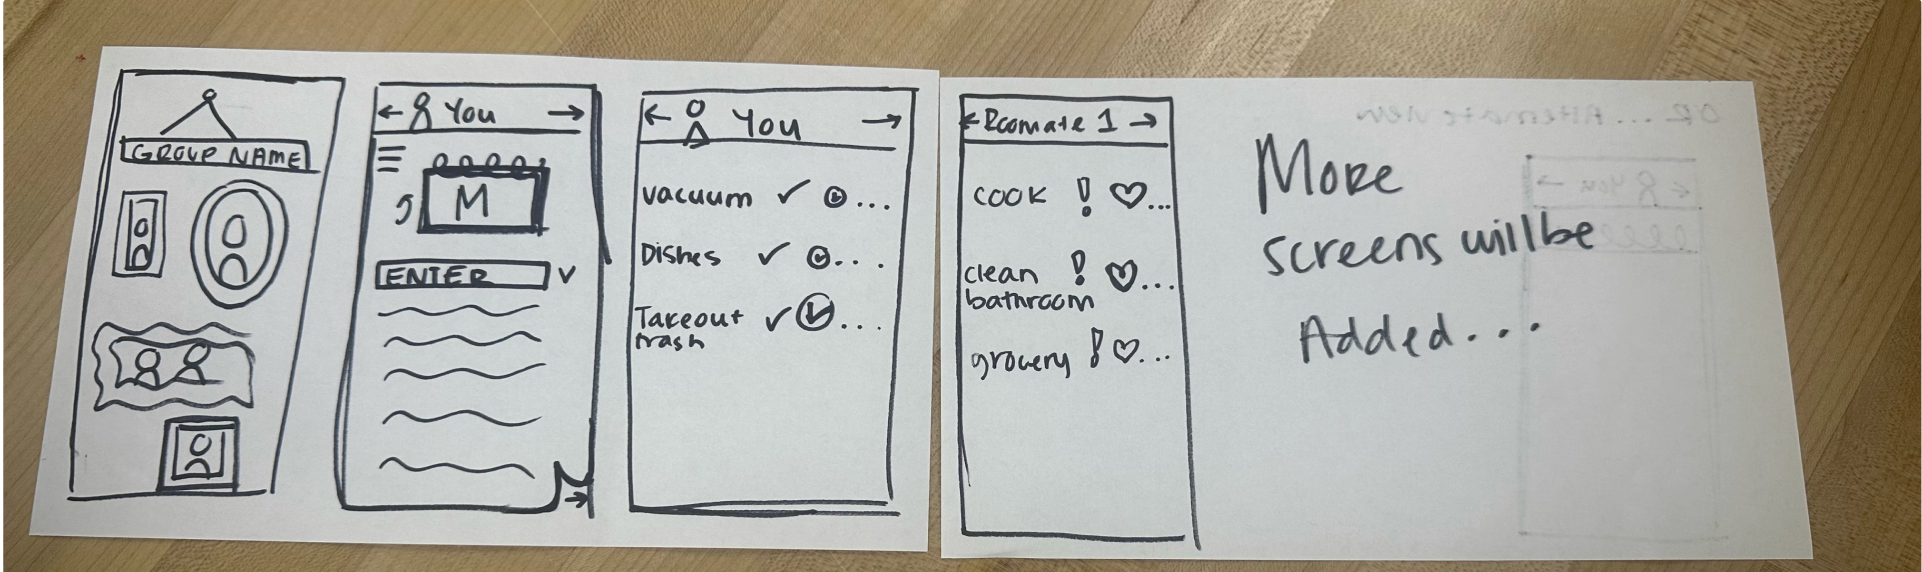 GROUP NAME
You
M
ENTER
You
vacuum
Dishes
Takeout
trash
Roomate 1
cook ! ...
clean ! ...
bathroom
grocery ! ...
More
screens will be
Added...
OR ... Alternate view
You